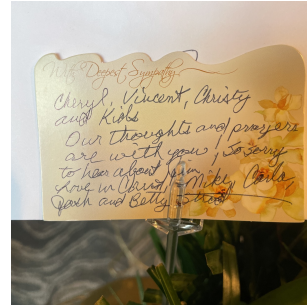 With Deepest Sympathy
Cheryl, Vincent, Christy
and Kids
Our thoughts and prayers
are with you, so sorry
to hear about Jim,
Love in Christ, Mike, Carla
Josh and Betty